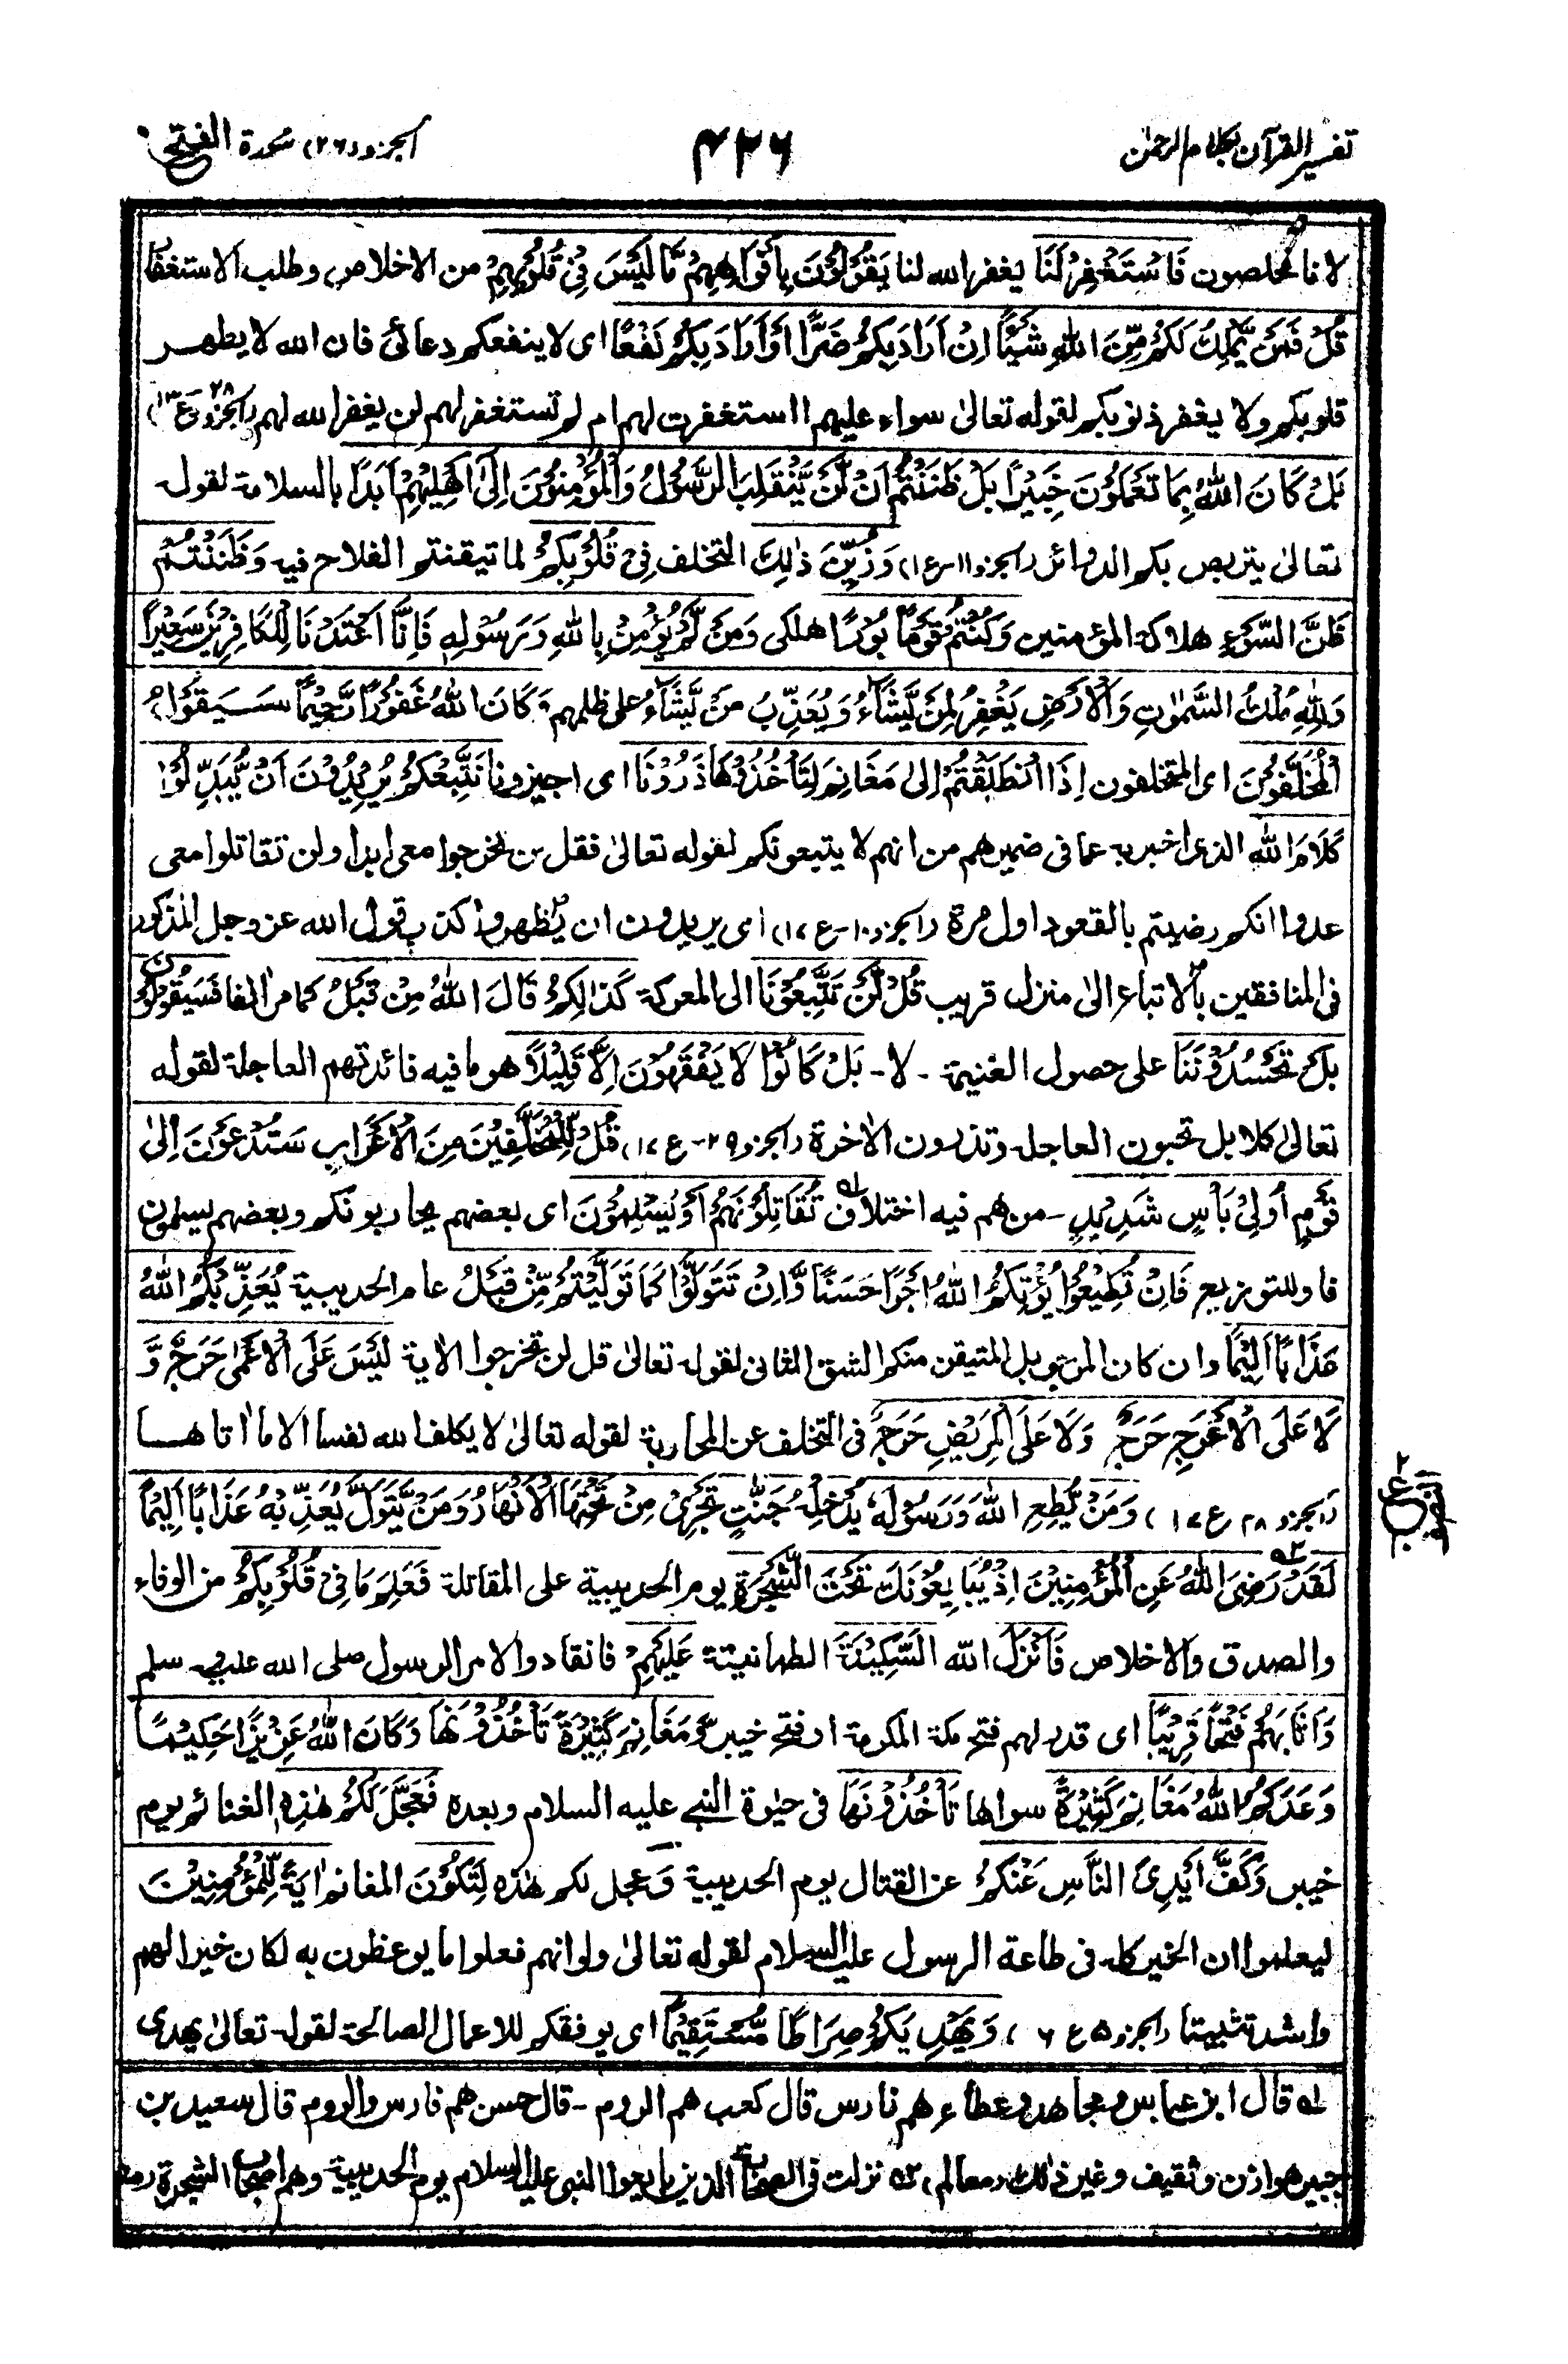 تفسير القرآن بكلام الرحمٰن
۴۲۶
الجزو (۲۶) سورة الفتح
لانا مخلصون فَاسْتَغْفِرْ لَنَا يغفر الله لنا يَقُوْلُوْنَ بِاَفْوَاهِهِمْ مَّا لَيْسَ فِيْ قُلُوْبِهِمْ من الاخلاص وطلب الاستغفار
قُلْ فَمَنْ يَّمْلِكُ لَكُمْ مِّنَ اللّٰهِ شَيْئًا اِنْ اَرَادَ بِكُمْ ضَرًّا اَوْ اَرَادَ بِكُمْ نَفْعًا اى لا ينفعكم دعائى فان الله لا يطهر
قلوبكم ولا يغفر ذنوبكم لقوله تعالىٰ سواء عليهم ا استغفرت لهم ام لم تستغفر لهم لن يغفر الله لهم (الجزو ۲۸ ع ۱۳)
بَلْ كَانَ اللّٰهُ بِمَا تَعْمَلُوْنَ خَبِيْرًا بَلْ ظَنَنْتُمْ اَنْ لَّنْ يَّنْقَلِبَ الرَّسُوْلُ وَالْمُؤْمِنُوْنَ اِلٰٓى اَهْلِيْهِمْ اَبَدًا بالسلامة لقوله
تعالىٰ يتربص بكم الدوائر (الجزو ۱۱ - ع ۱) وَزُيِّنَ ذٰلِكَ التخلف فِيْ قُلُوْبِكُمْ لما تيقنتم الفلاح فيه وَظَنَنْتُمْ
ظَنَّ السَّوْءِ هلاكة المؤمنين وَكُنْتُمْ قَوْمًا بُوْرًا هلكى وَمَنْ لَّمْ يُؤْمِنْ بِاللّٰهِ وَرَسُوْلِهٖ فَاِنَّا اَعْتَدْنَا لِلْكَافِرِيْنَ سَعِيْرًا
وَلِلّٰهِ مُلْكُ السَّمٰوٰتِ وَالْاَرْضِ يَغْفِرُ لِمَنْ يَّشَآءُ وَيُعَذِّبُ مَنْ يَّشَآءُ على ظلمهم وَكَانَ اللّٰهُ غَفُوْرًا رَّحِيْمًا سَيَقُوْلُ
الْمُخَلَّفُوْنَ اى المتخلفون اِذَا انْطَلَقْتُمْ اِلٰى مَغَانِمَ لِتَاْخُذُوْهَا ذَرُوْنَا اى اجيزونا نَتَّبِعْكُمْ يُرِيْدُوْنَ اَنْ يُّبَدِّلُوْا
كَلَامَ اللّٰهِ الذى اخبر به عما فى ضميرهم من انهم لا يتبعونكم لقوله تعالىٰ فقل لن تخرجوا معى ابدا ولن تقاتلوا معى
عدوا انكم رضيتم بالقعود اول مرة (الجزو ۱۰ - ع ۱۷) اى يريدون ان يظهروا كذب قول الله عز وجل المذكور
فى المنافقين بالاتباع الىٰ منزل قريب قُلْ لَّنْ تَتَّبِعُوْنَا الى المعركة كَذٰلِكُمْ قَالَ اللّٰهُ مِنْ قَبْلُ كما مر اٰنفا فَسَيَقُوْلُوْنَ
بَلْ تَحْسُدُوْنَنَا على حصول الغنيمة - لا - بَلْ كَانُوْا لَا يَفْقَهُوْنَ اِلَّا قَلِيْلًا هو ما فيه فائدتهم العاجلة لقوله
تعالىٰ كلا بل تحبون العاجلة وتذرون الاٰخرة (الجزو ۲۹ - ع ۱۷) قُلْ لِّلْمُخَلَّفِيْنَ مِنَ الْاَعْرَابِ سَتُدْعَوْنَ اِلٰى
قَوْمٍ اُولِيْ بَاْسٍ شَدِيْدٍ - من هم فيه اختلاف ۱ه تُقَاتِلُوْنَهُمْ اَوْ يُسْلِمُوْنَ اى بعضهم يحاربونكم وبعضهم يسلمون
فاو للتوزيع فَاِنْ تُطِيْعُوْا يُؤْتِكُمُ اللّٰهُ اَجْرًا حَسَنًا وَّاِنْ تَتَوَلَّوْا كَمَا تَوَلَّيْتُمْ مِّنْ قَبْلُ عام الحديبية يُعَذِّبْكُمُ اللّٰهُ
عَذَابًا اَلِيْمًا وان كان المرجو بل المتيقن منكم الشق الثانى لقوله تعالىٰ قل لن تخرجوا الاٰية لَيْسَ عَلَى الْاَعْمٰى حَرَجٌ وَّ
لَا عَلَى الْاَعْرَجِ حَرَجٌ وَلَا عَلَى الْمَرِيْضِ حَرَجٌ فى التخلف عن المحاربة لقوله تعالىٰ لا يكلف الله نفسا الا ما اٰتاها
(الجزو ۲۸ ع ۱۷) وَمَنْ يُّطِعِ اللّٰهَ وَرَسُوْلَهٗ يُدْخِلْهُ جَنّٰتٍ تَجْرِيْ مِنْ تَحْتِهَا الْاَنْهَارُ وَمَنْ يَّتَوَلَّ يُعَذِّبْهُ عَذَابًا اَلِيْمًا
لَقَدْ ۲ه رَضِيَ اللّٰهُ عَنِ الْمُؤْمِنِيْنَ اِذْ يُبَايِعُوْنَكَ تَحْتَ الشَّجَرَةِ يوم الحديبية على المقاتلة فَعَلِمَ مَا فِيْ قُلُوْبِكُمْ من الوفاء
والصدق والاخلاص فَاَنْزَلَ الله السَّكِيْنَةَ الطمانينة عَلَيْهِمْ فانقادوا لامر الرسول صلى الله عليه سلم
وَاَثَابَهُمْ فَتْحًا قَرِيْبًا اى قدر لهم فتح مكة المكرمة او فتح خيبر وَّمَغَانِمَ كَثِيْرَةً تَاْخُذُوْنَهَا وَكَانَ اللّٰهُ عَزِيْزًا حَكِيْمًا
وَعَدَكُمُ اللّٰهُ مَغَانِمَ كَثِيْرَةً سواها تَاْخُذُوْنَهَا فى حيٰوة النبى عليه السلام وبعده فَعَجَّلَ لَكُمْ هٰذِهٖ الغنائم يوم
خيبر وَكَفَّ اَيْدِيَ النَّاسِ عَنْكُمْ عن القتال يوم الحديبية وَ عجل لكم هٰذه لِتَكُوْنَ المغانم اٰيَةً لِّلْمُؤْمِنِيْنَ
ليعلموا ان الخير كله فى طاعة الرسول عليه السلام لقوله تعالىٰ ولو انهم فعلوا ما يوعظون به لكان خيرا لهم
واشد تثبيتا (الجزو ۵ ع ۶) وَيَهْدِيَكُمْ صِرَاطًا مُّسْتَقِيْمًا اى يوفقكم للاعمال الصالحة لقوله تعالىٰ يهدى
۱ه قال ابن عباس ومجاهد وعطاء هم فارس قال كعب هم الروم - قال حسن هم فارس والروم قال سعيد بن
جبير هوازن وثقيف وغير ذلك (معالم) ۲ه نزلت فى الصحابة الذين بايعوا النبى عليه السلام يوم الحديبية وهم اصحاب الشجرة رمنه